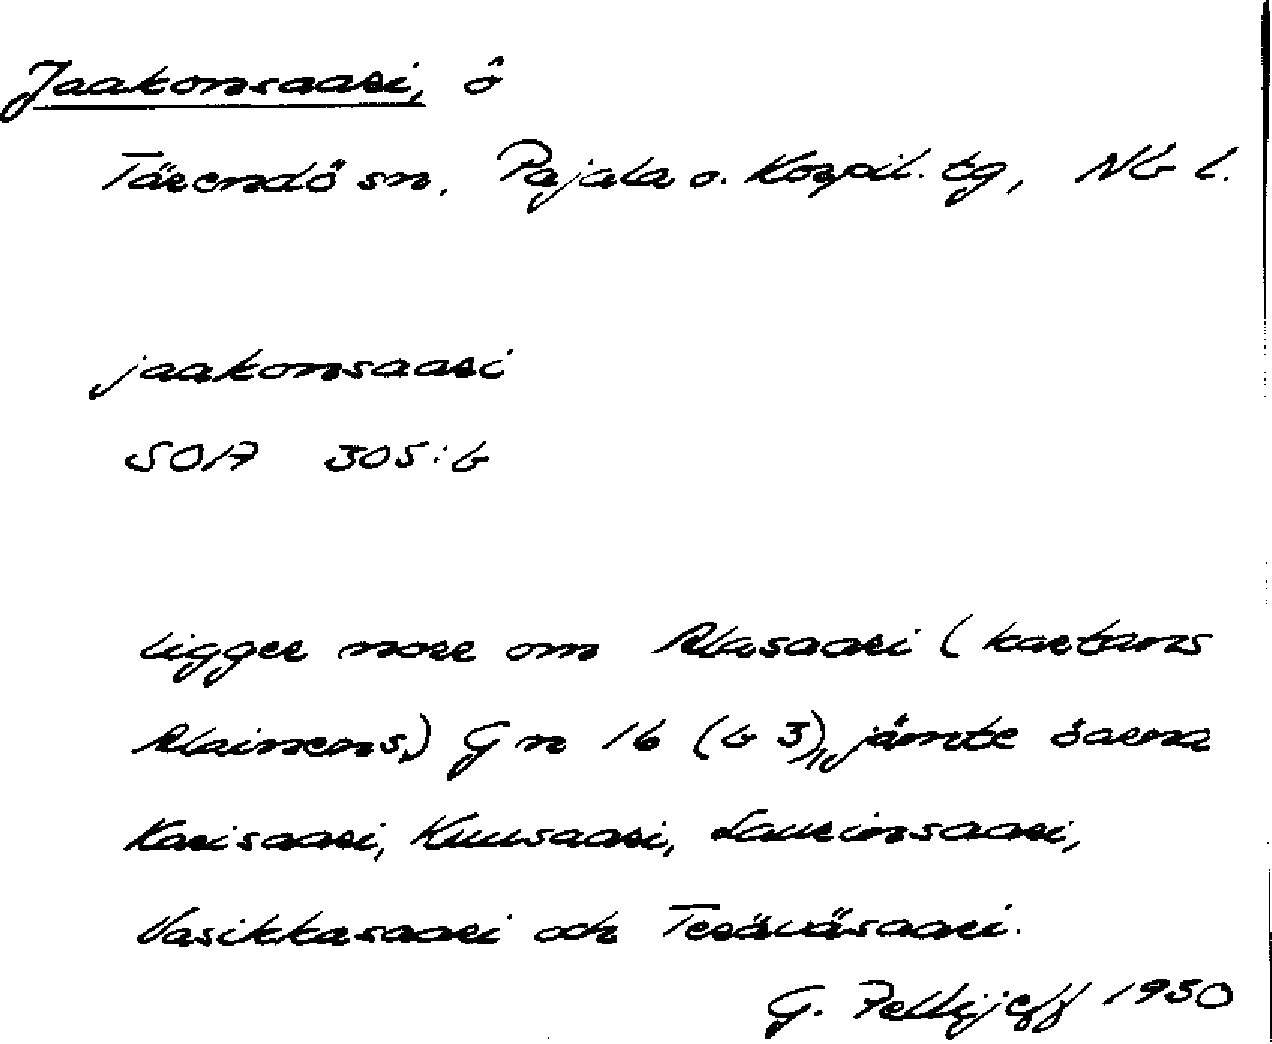 Jaakonsaari, ö
Tärendö sn. Pajala o. Korpil. tg, Nb l.
jaakonsaari
SOA 305:6
Ligger norr om Alasaari (kartans
Alainens) G n 16 (b 3), jämte öarna
Karisaari, Kuusaari, Laurinsaari,
Vasikkasaari och Terävä­saari.
G. Pellijeff 1950